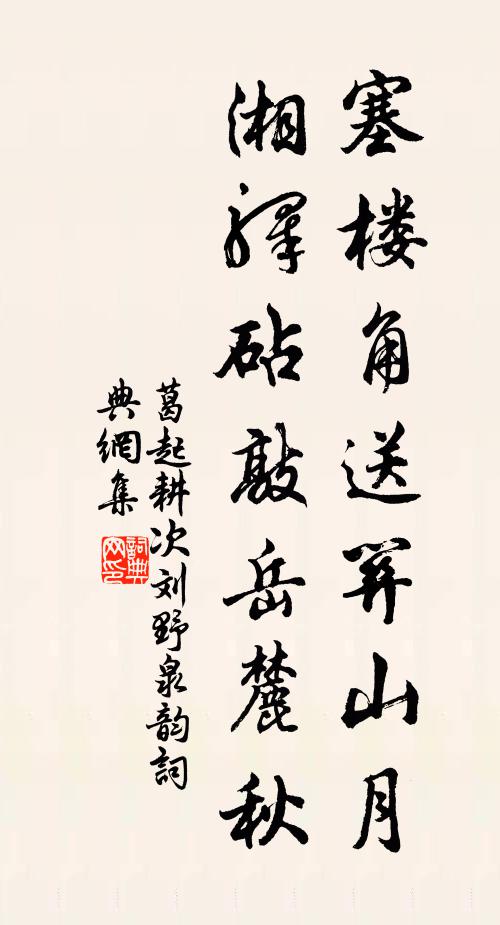 塞楼角送关山月
湘驿砧敲岳麓秋
葛起耕次刘野泉韵詞
典網集
詞典網印